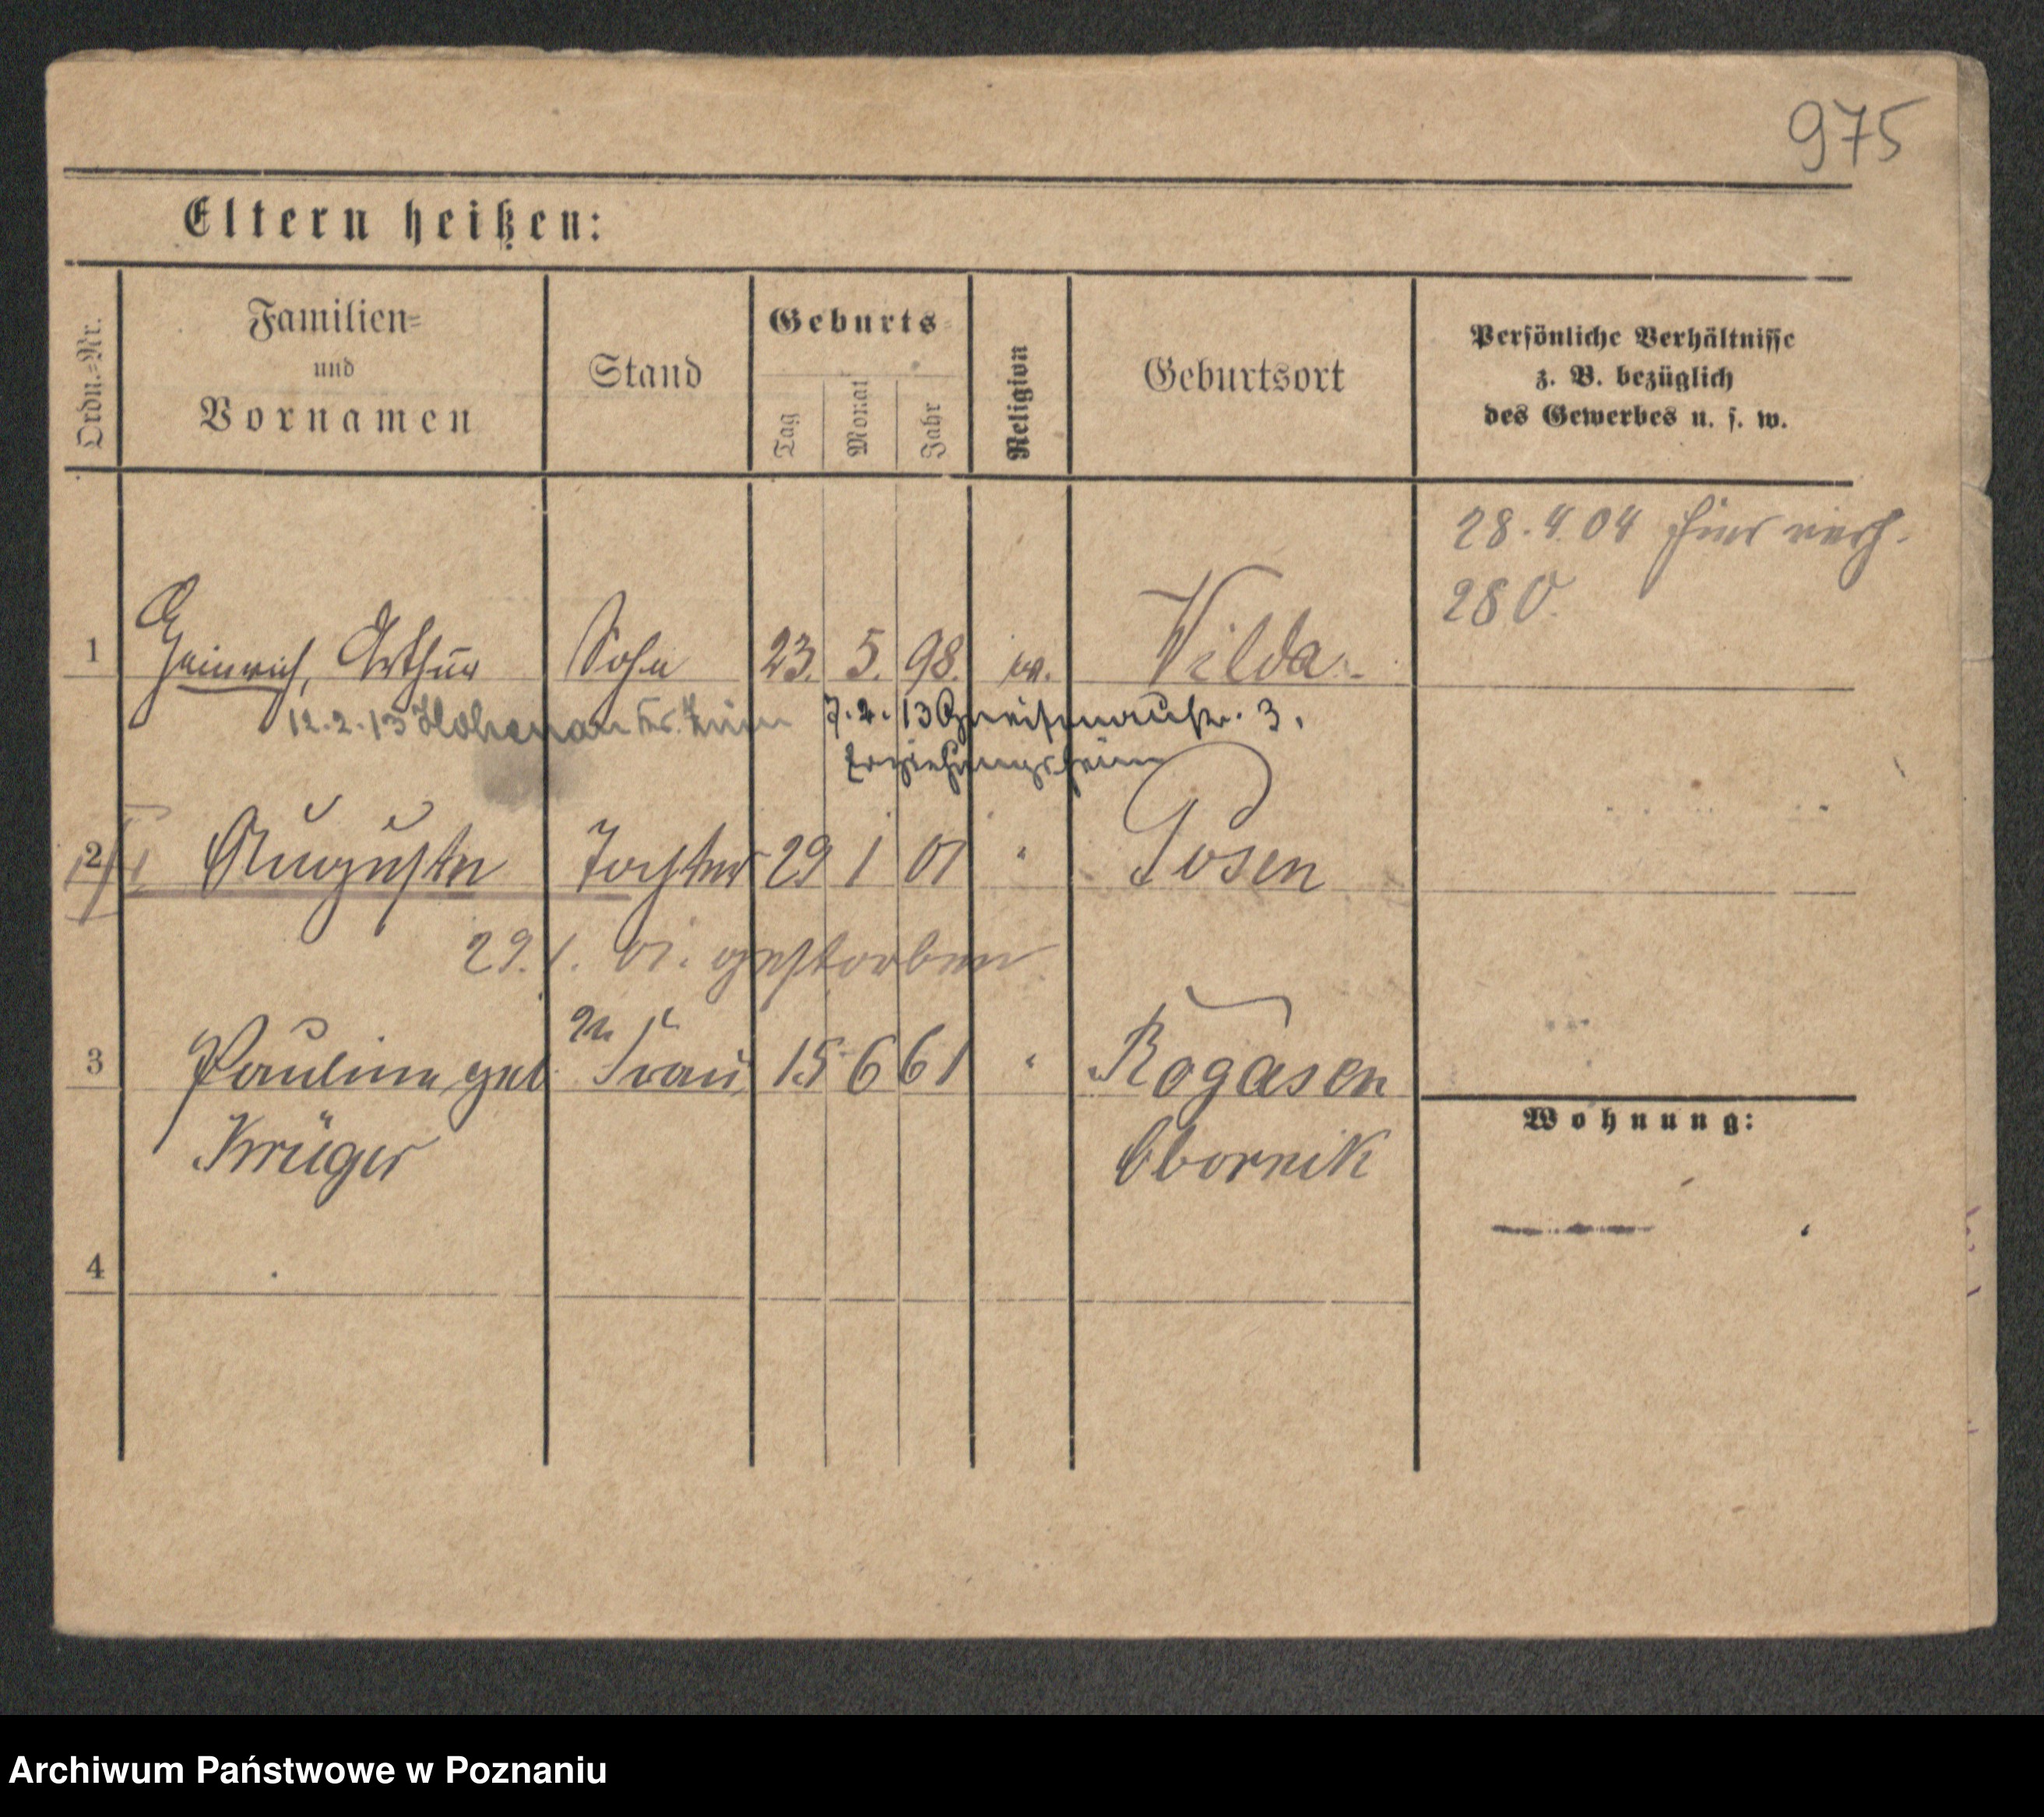 975
Eltern heißen:
Ordn.-Nr.
Familien-
und
Vornamen
Stand
Geburts-
Tag
Monat
Jahr
Religion
Geburtsort
Persönliche Verhältnisse
z. B. bezüglich
des Gewerbes u. s. w.
28.4.04 hier verh.
280.
1 Heinrich, Arthur Sohn 23. 5. 98. Wilda.
12.2.13 Hohenau Kr. Znin 7.2.13 Gneisenaustr. 3.
Erziehungsheim
2 Auguste Tochter 29 1 01 " Posen
29.1.01. gestorben
3 Pauline geb Frau 15 6 61 " Rogasen
Krüger Obornik
Wohnung:
4
Archiwum Państwowe w Poznaniu